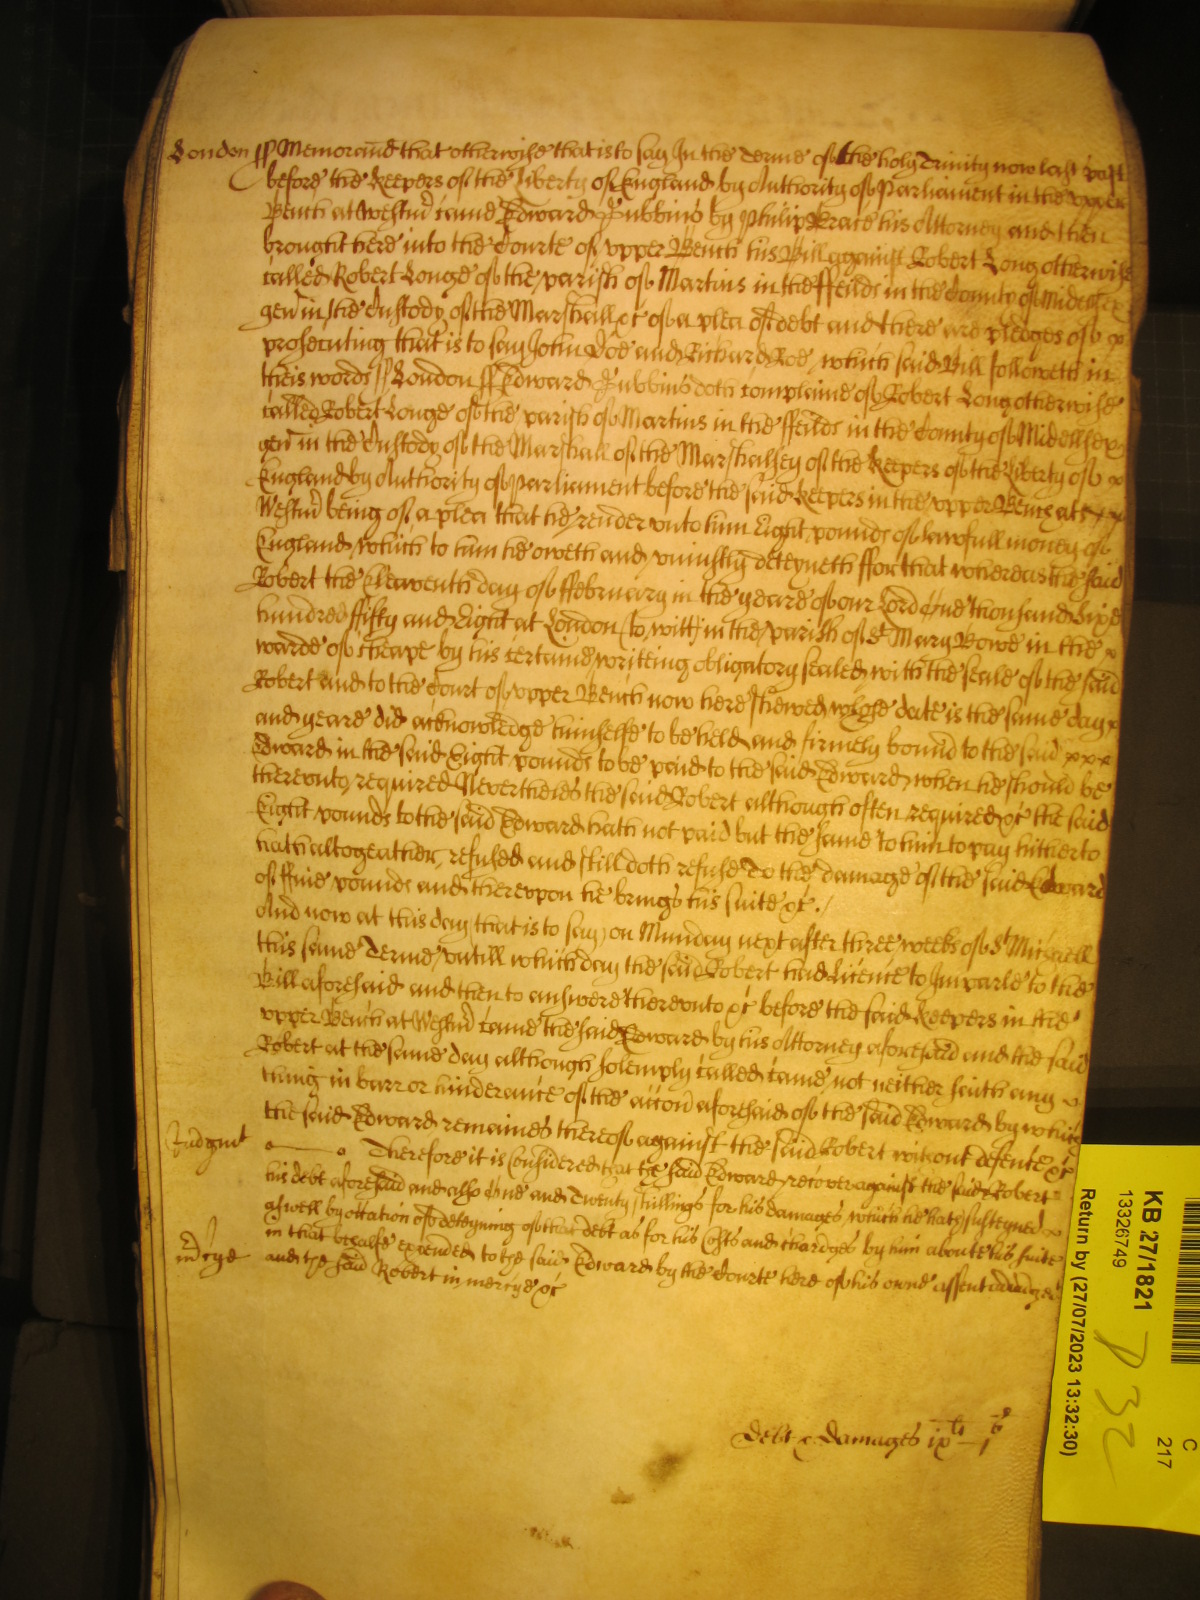 London ss Memorand that otherwise that is to say In the Terme of the holy Trinity now last past
before the Keepers of the Liberty of England by Authority of Parliament in the upper
Bench at Westmr came Edward Stubbins by Phillip his Attorney and then
brought here into the Courte of upper Bench his Bill against Robert Long otherwise
called Robert Longe of the parish of Martins in the ffeilds in the County of Middlesex
gen in the Custody of the Marshall &c of a plea of debt and there are pledges of
prosecuting that is to say John Doe and Richard Roe which said Bill followeth in
theis words ss London ss Edward Stubbins doth complaine of Robert Long otherwise
called Robert Longe of the parish of Martins in the ffeilds in the County of Midellsex
gen in the Custody of the Marshall of the Marshalsey of the Keepers of the Liberty of
England by Authority of Parliament before the said Keepers in the upper Bench att
Westmr being of a plea that he render unto him Eight pounds of lawfull money of
England which to him he oweth and uniustly deteyneth ffor that whereas the said
Robert the Eleaventh day of ffebruary in the yeare of our Lord One thousand Sixe
hundred ffifty and Eight at London (to witt) in the parish of St Mary Bowe in the
warde of Cheape by his certaine writeing obligatory sealed with the seale of the said
Robert and to the Court of upper Bench now here shewed whose date is the same day
and yeare did acknowledge himselfe to be held and firmely bound to the said
Edward in the said Eight pounds to be paid to the said Edward when he should be
thereunto required Nevertheles the said Robert although often required &c the said
Eight pounds to the said Edward hath not paid but the same to him to pay hitherto
hath altogeather refused and still doth refuse To the damage of the said Edward
of ffiue pounds and thereupon he brings his suite &c.
And now at this day that is to say on Munday next after three weeks of St Michaell
this same Terme untill which day the said Robert had licence to Imparle to the
Bill aforesaid and then to answere thereunto &c before the said Keepers in the
upper Bench at Westmr came the said Edward by his Attorney aforesaid and the said
Robert at the same day although solemply called came not neither saith any
thing in barr or hinderance of the accon aforesaid of the said Edward by which
the said Edward remaines thereof against the said Robert without defence &c
Judgmt Therefore it is Considered that the said Edward recover against the said Robert
his debt aforesaid and also One and Twenty shillings for his damages which he hath susteyned
aswell by occation of deteyning of that debt as for his Costs and chardges by him aboute his suite
in that behalfe expended to the said Edward by the Courte here of his owne assent adiudged
mcye and the said Robert in mercye &c
debt & damages ix li – j s
KB 27/1821
13326749
Return by (27/07/2023 13:32:30)
C
217
P 32